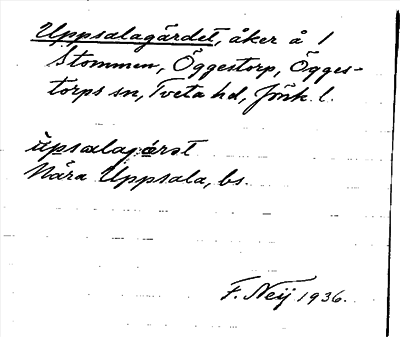 Uppsalagärdet, åker å 1
Stommen, Öggestorp, Ögges-
torps sn, Tveta hd, Jönk. l.
Nära Uppsala, bs.
F. Neij 1936.